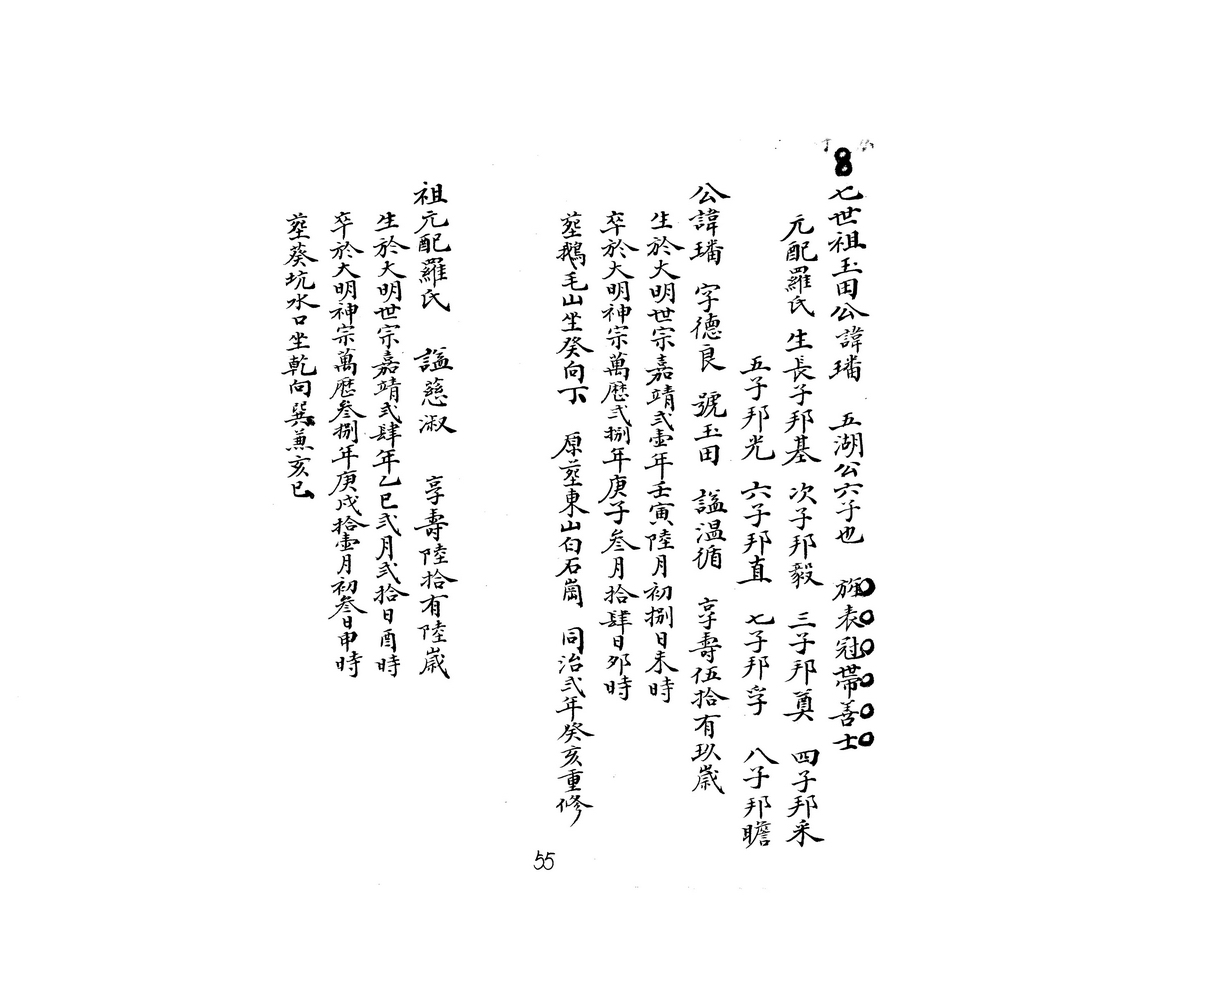 8
七世祖玉田公諱璠 五湖公六子也 旌表冠帶善士
元配羅氏 生長子邦基 次子邦毅 三子邦奠 四子邦采
五子邦光 六子邦直 七子邦孚 八子邦瞻
公諱璠 字德良 號玉田 諡温循 享壽伍拾有玖歲
生於大明世宗嘉靖弍壹年壬寅陸月初捌日未時
卒於大明神宗萬歷弍捌年庚子叁月拾肆日卯時
塟鵝毛山坐癸向丁 原塟東山白石崗 同治弍年癸亥重修
祖元配羅氏 諡慈淑 享壽陸拾有陸歲
生於大明世宗嘉靖弍肆年乙巳弍月弍拾日酉時
卒於大明神宗萬歷叁捌年庚戌拾壹月初叁日申時
塟葵坑水口坐乾向巽兼亥巳
55